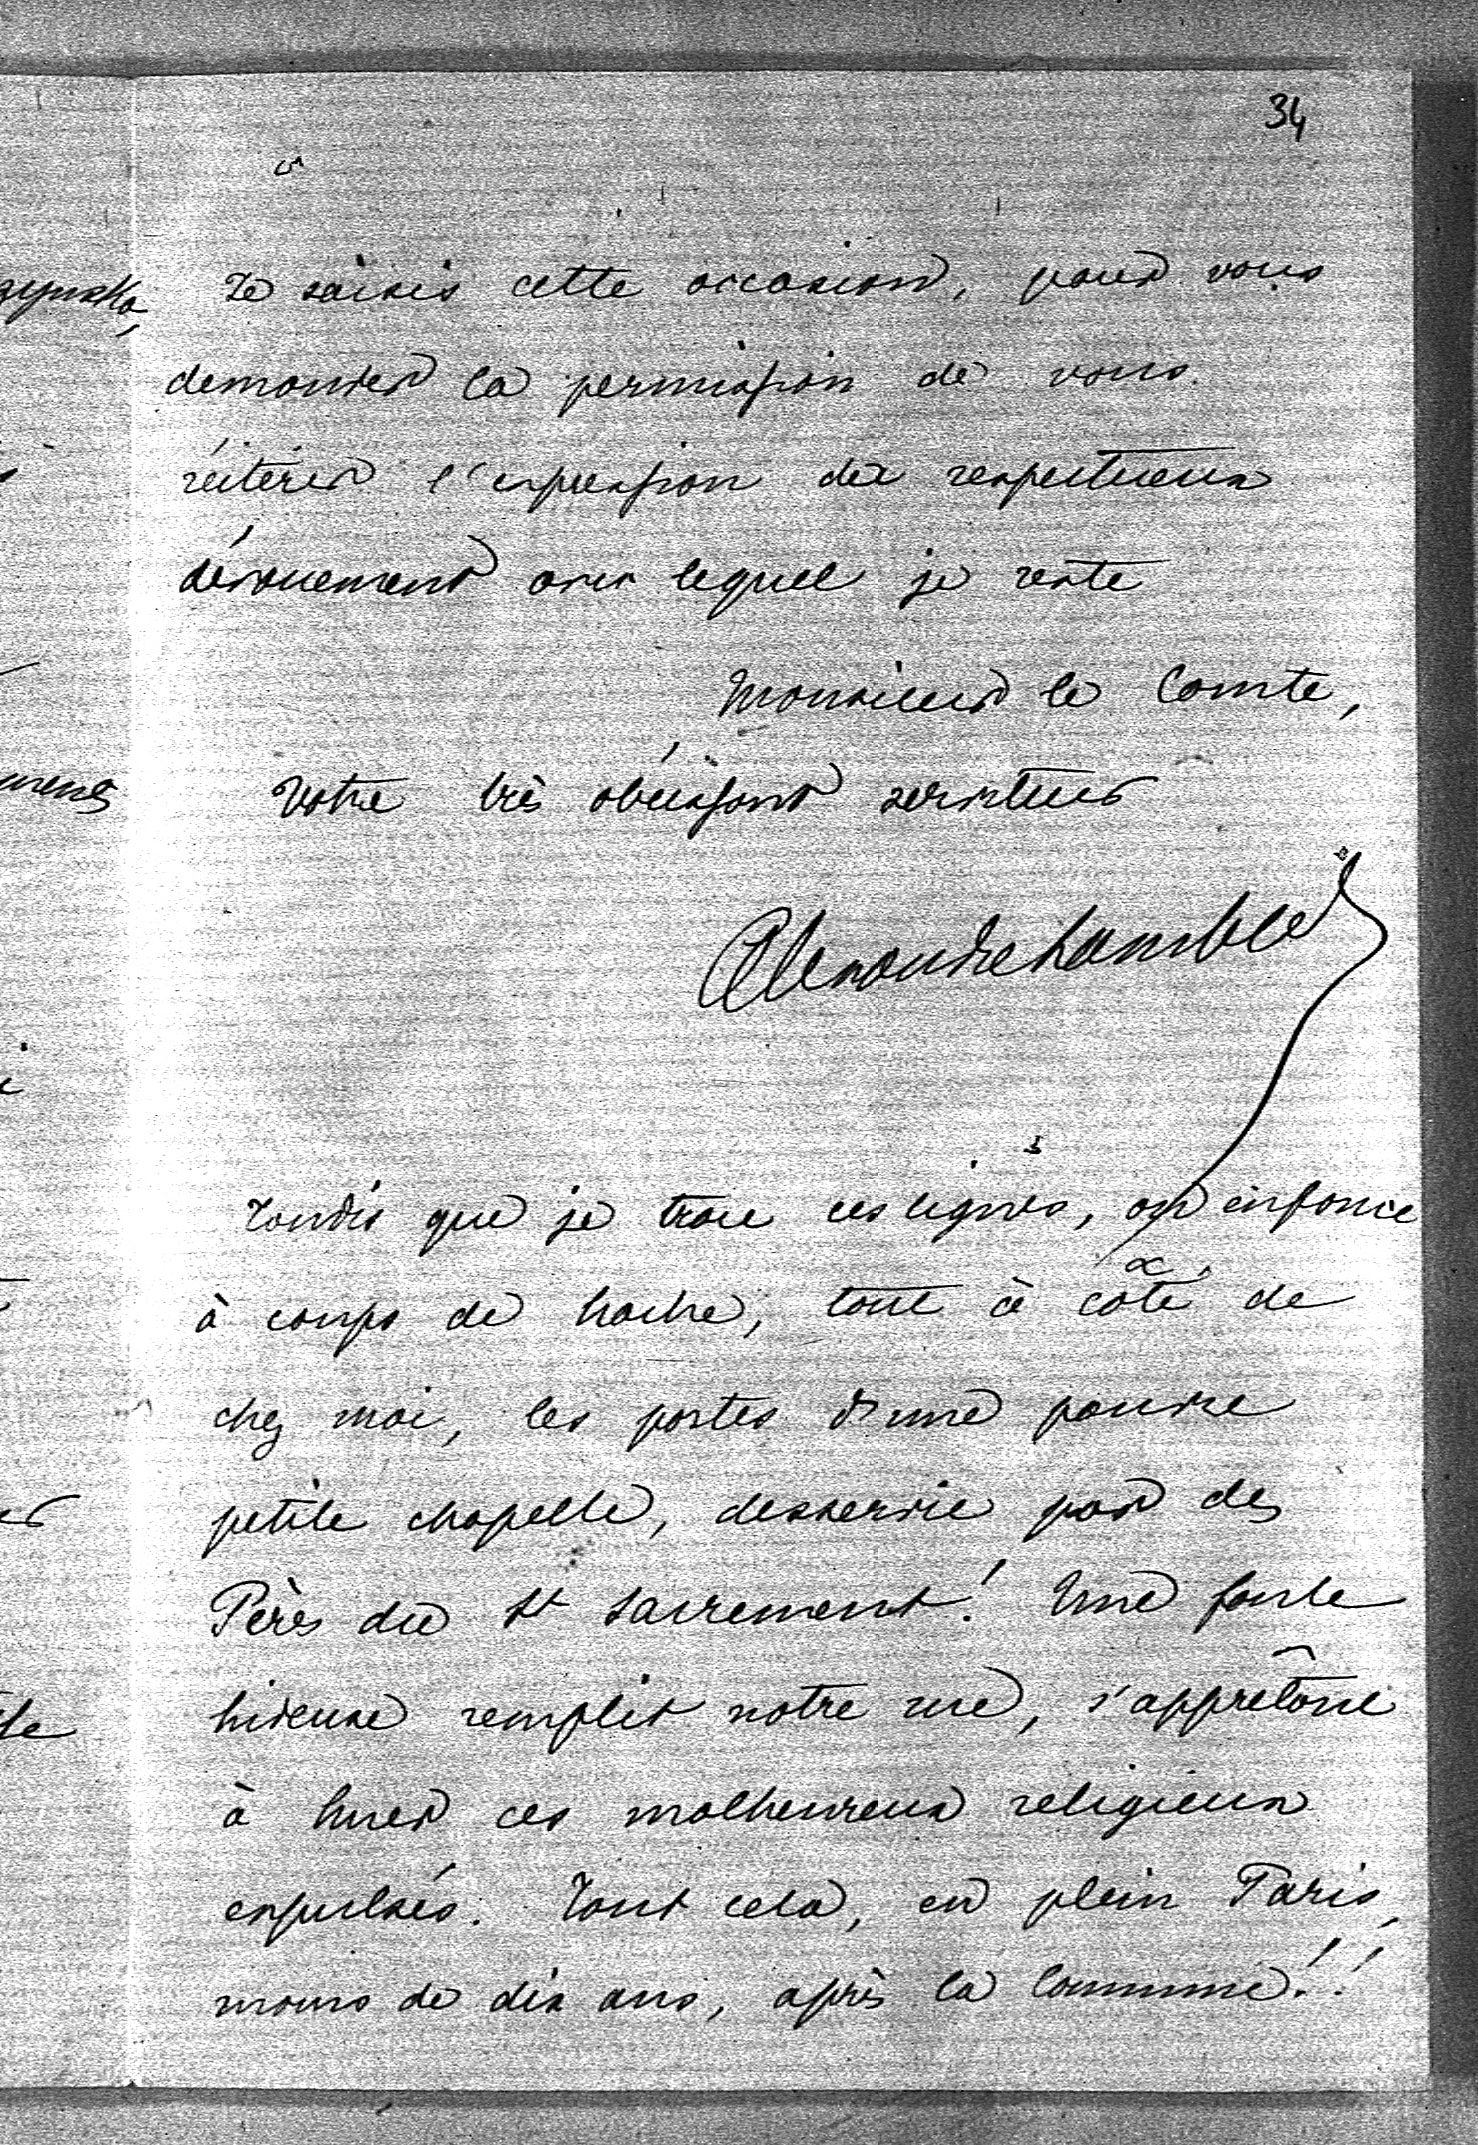 34
Je saisis cette occasion, pour vous
demander la permission de vous
réitérer l'expression du respectueux
dévouement avec lequel je reste
Monsieur le Comte,
Votre très obéissant serviteur
Alexandre
Tandis que je trace ces lignes, on enfonce
à coups de hache, tout à côté de
chez moi, les portes d'une pauvre
petite chapelle, desservie par des
Pères du St Sacrement! Une foule
hideuse remplit notre rue, s'apprêtant
à huer ces malheureux religieux
expulsés. Tout cela, en plein Paris,
moins de dix ans, après la Commune!!